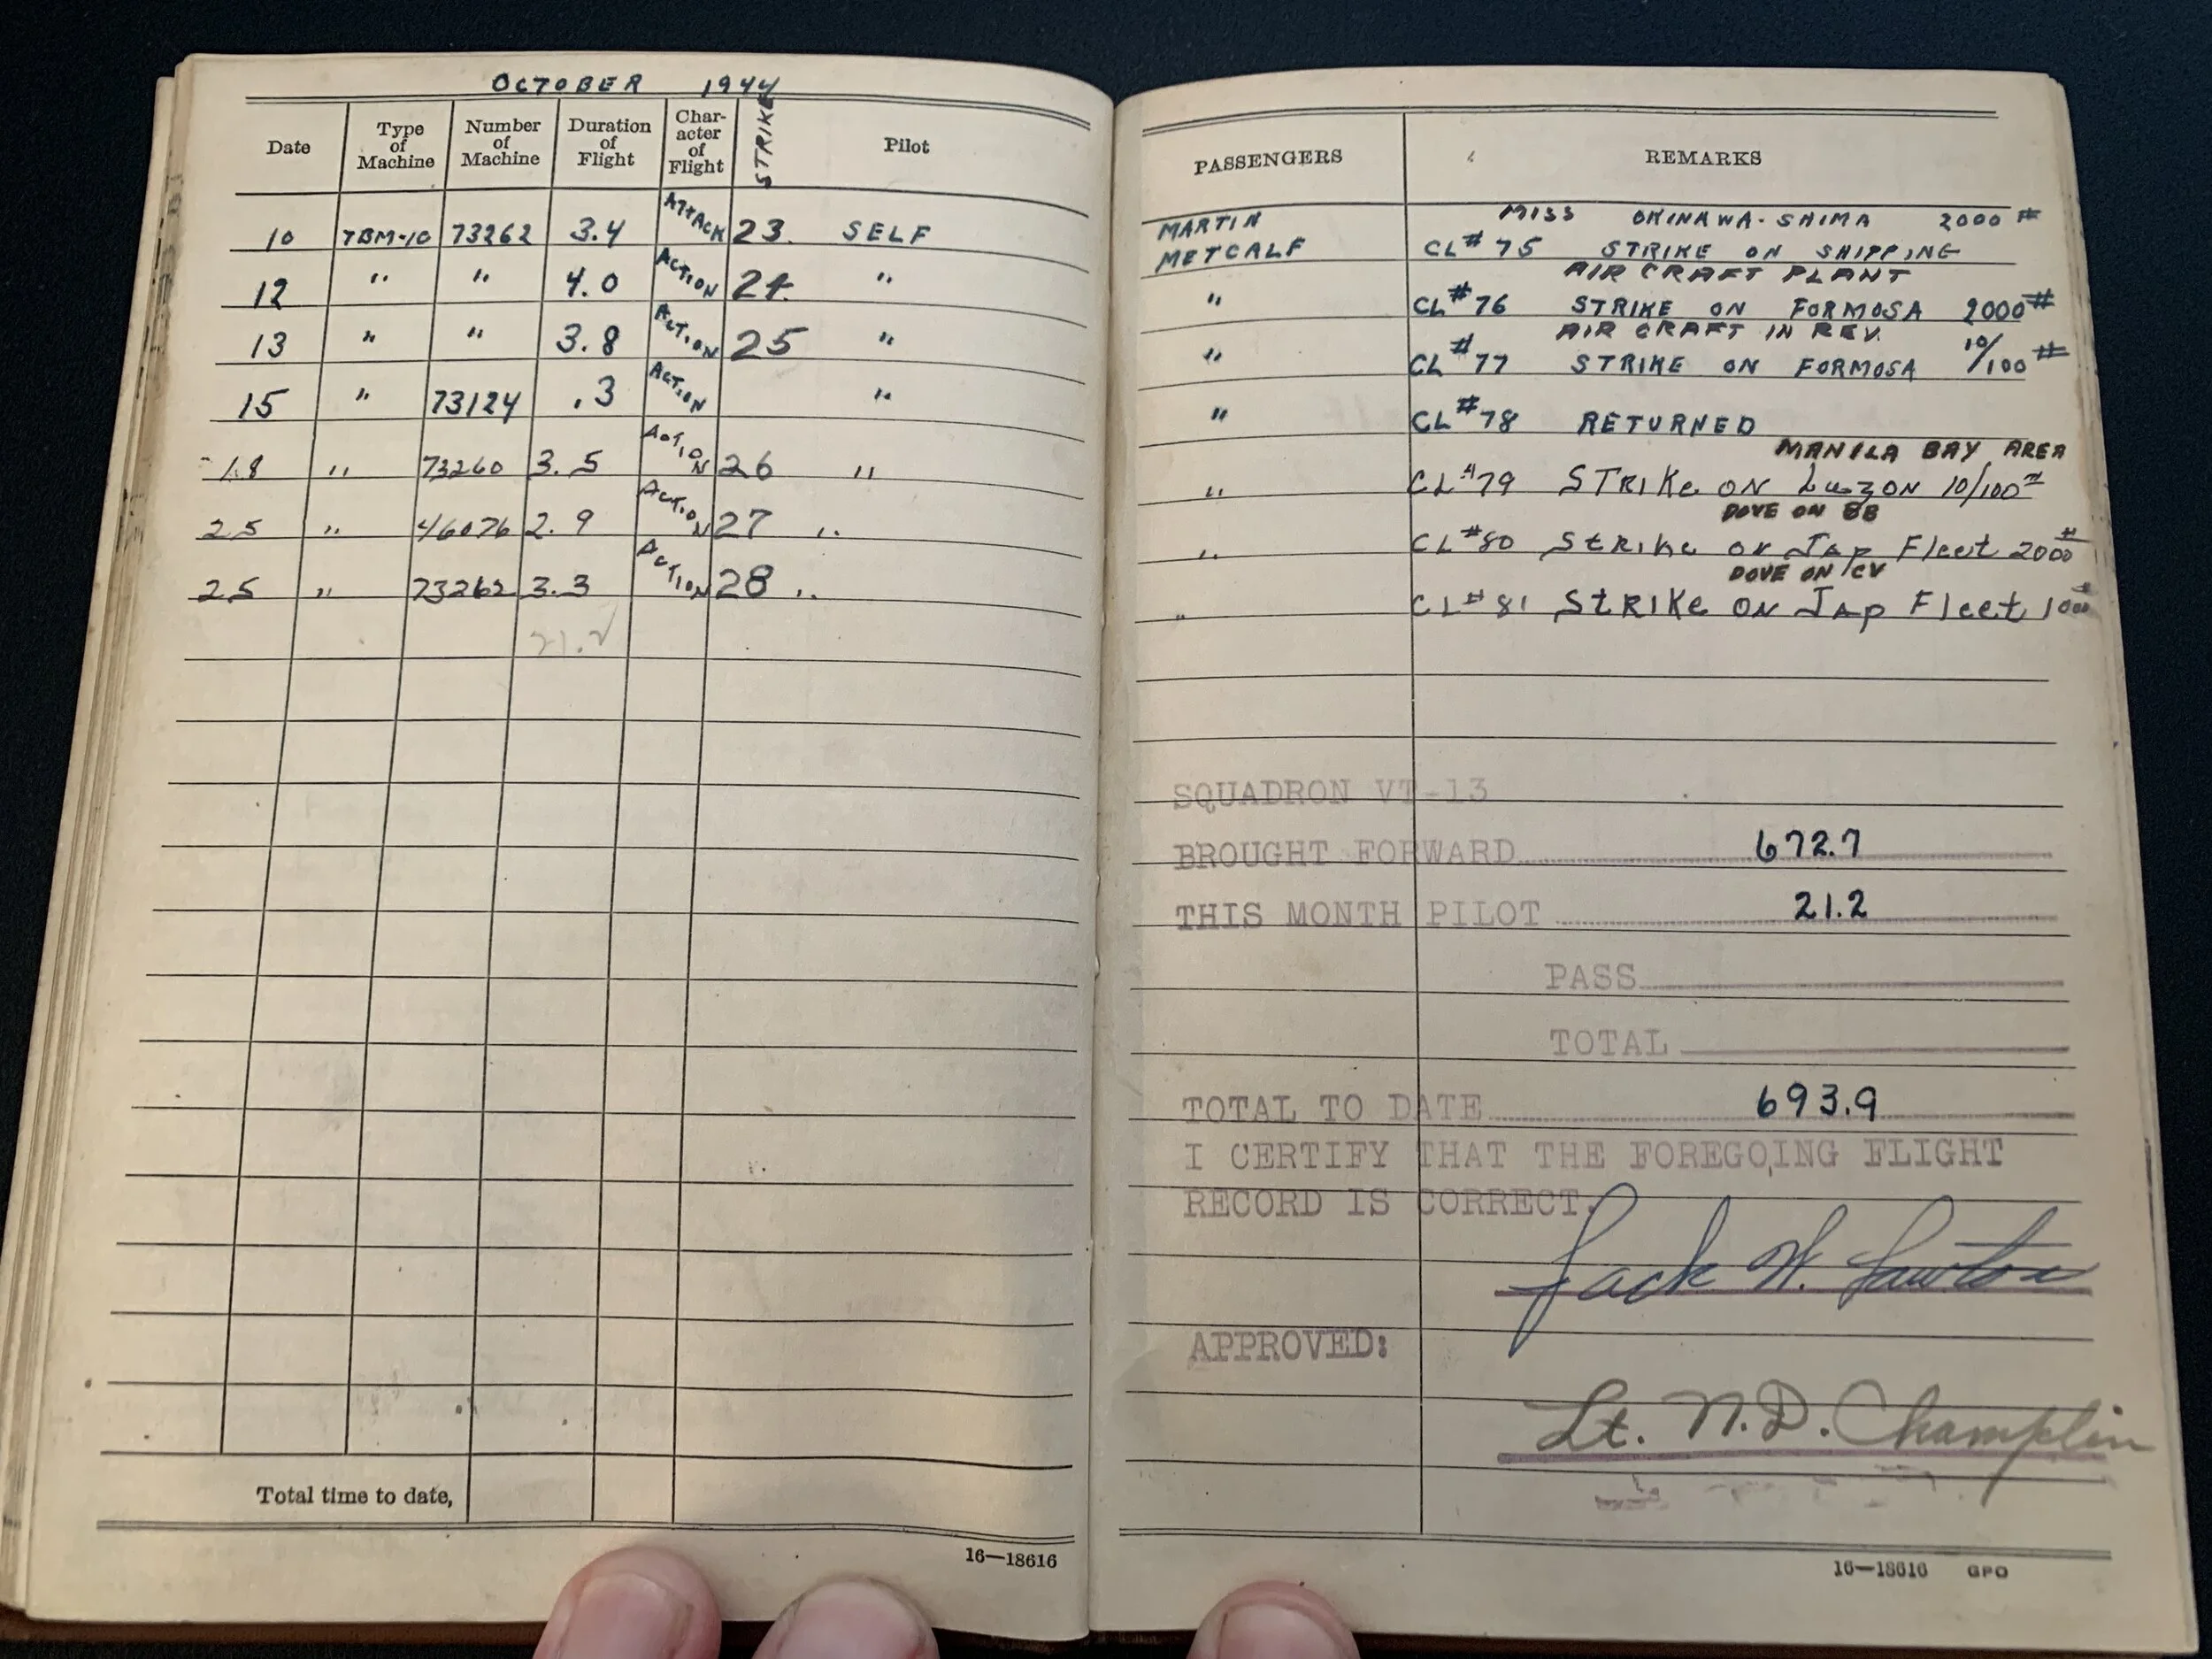 OCTOBER 1944
Date Type of Machine Number of Machine Duration of Flight Character of Flight STRIKE Pilot
PASSENGERS REMARKS
10 TBM-1C 73262 3.4 ATTACK 23. SELF
MARTIN MISS OKINAWA-SHIMA 2000#
METCALF CL#75 STRIKE ON SHIPPING
12 " " 4.0 ACTION 24 "
AIR CRAFT PLANT
" CL#76 STRIKE ON FORMOSA 2000#
13 " " 3.8 ACTION 25 "
AIR CRAFT IN REV.
" CL#77 STRIKE ON FORMOSA 10/100#
15 " 73124 .3 ACTION "
" CL#78 RETURNED
18 " 73260 3.5 ACTION 26 "
MANILA BAY AREA
" CL#79 STRIKE ON LuzON 10/100#
25 " 46076 2.9 ACTION 27 "
DOVE ON BB
" CL#80 StRIKe ON JAp Fleet 2000#
25 " 73262 3.3 ACTION 28 "
DOVE ON CV
" CL#81 StRIKe ON JAp Fleet 1000#
21.2
SQUADRON VT-13
BROUGHT FORWARD 672.7
THIS MONTH PILOT 21.2
PASS
TOTAL
TOTAL TO DATE 693.9
I CERTIFY THAT THE FOREGOING FLIGHT
RECORD IS CORRECT.
Jack W. Lawton
APPROVED:
Lt. N.D. Champlin
Total time to date,
16—18616
16—18616 GPO